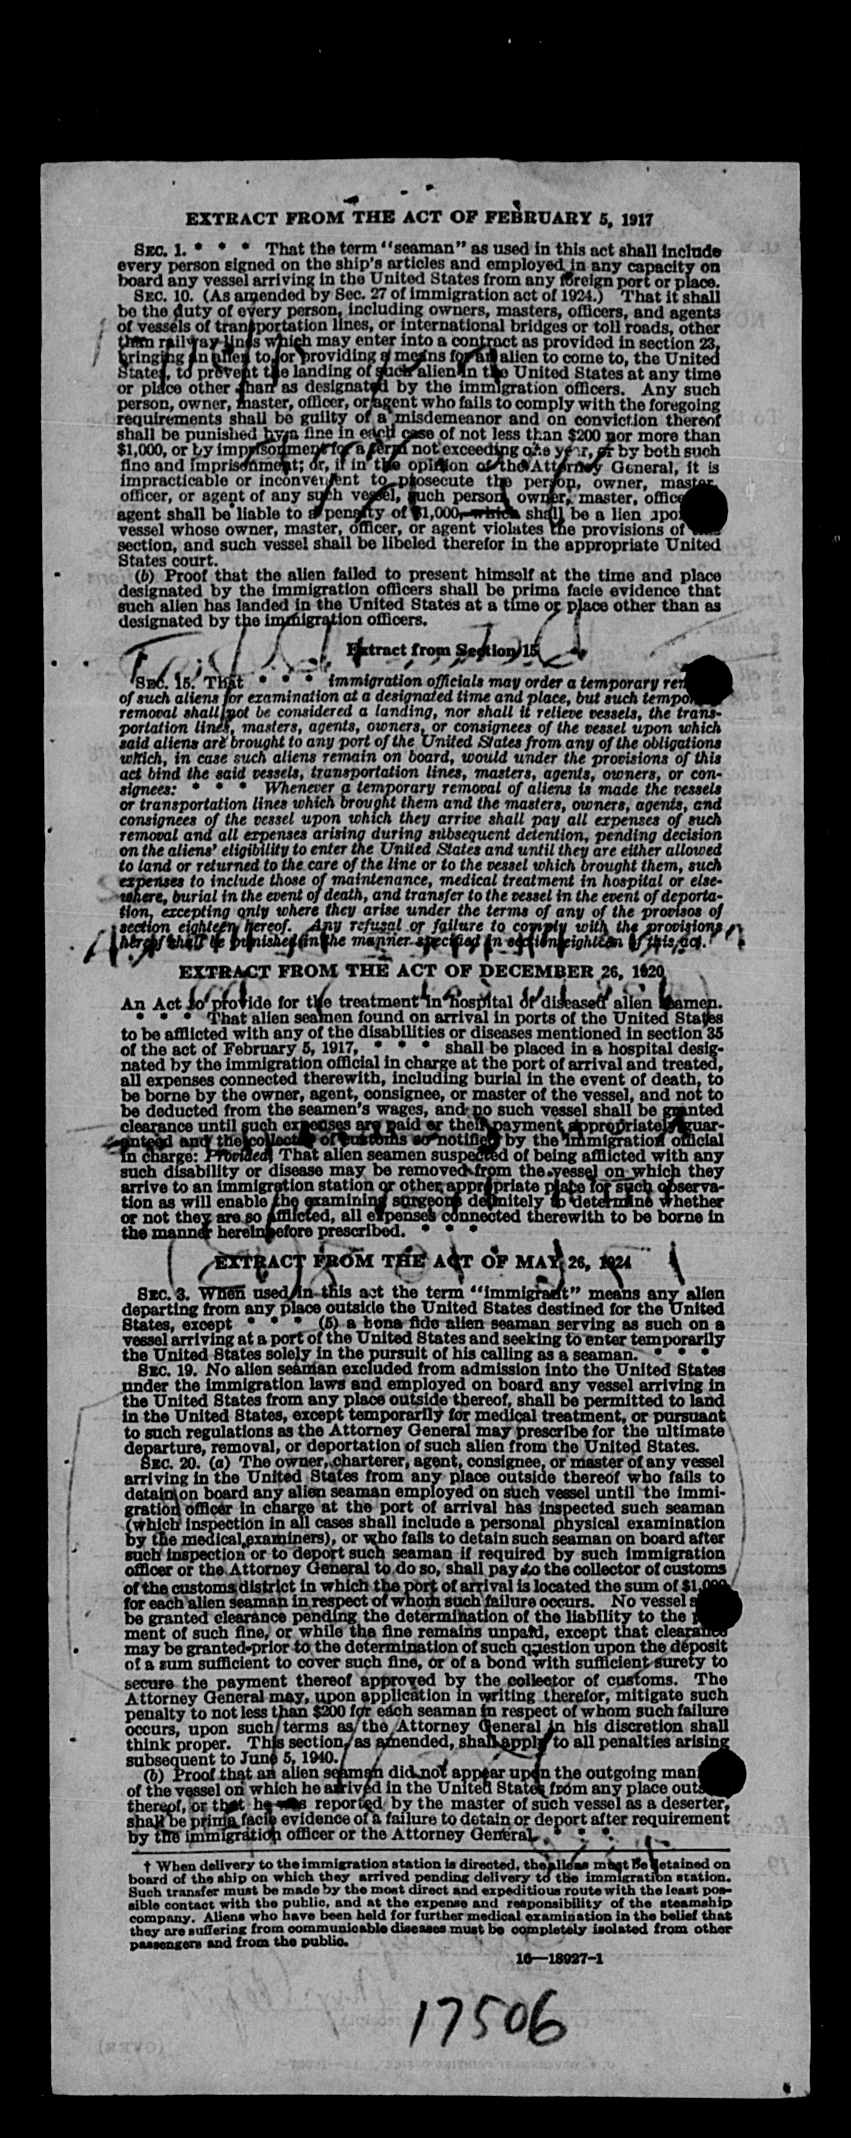 EXTRACT FROM THE ACT OF FEBRUARY 5, 1917
SEC. 1. * * * That the term "seaman" as used in this act shall include
every person signed on the ship's articles and employed in any capacity on
board any vessel arriving in the United States from any foreign port or place.
SEC. 10. (As amended by Sec. 27 of immigration act of 1924.) That it shall
be the duty of every person, including owners, masters, officers, and agents
of vessels of transportation lines, or international bridges or toll roads, other
than railway lines which may enter into a contract as provided in section 23,
bringing an alien to, or providing a means for an alien to come to, the United
States, to prevent the landing of such alien in the United States at any time
or place other than as designated by the immigration officers. Any such
person, owner, master, officer, or agent who fails to comply with the foregoing
requirements shall be guilty of a misdemeanor and on conviction thereof
shall be punished by a fine in each case of not less than $200 nor more than
$1,000, or by imprisonment for a term not exceeding one year, or by both such
fine and imprisonment; or, if in the opinion of the Attorney General, it is
impracticable or inconvenient to prosecute the person, owner, master,
officer, or agent of any such vessel, such person, owner, master, office
agent shall be liable to a penalty of $1,000, which shall be a lien upo
vessel whose owner, master, officer, or agent violates the provisions of this
section, and such vessel shall be libeled therefor in the appropriate United
States court.
(b) Proof that the alien failed to present himself at the time and place
designated by the immigration officers shall be prima facie evidence that
such alien has landed in the United States at a time or place other than as
designated by the immigration officers.
Extract from Section 15
SEC. 15. That * * * immigration officials may order a temporary rem
of such aliens for examination at a designated time and place, but such tempor
removal shall not be considered a landing, nor shall it relieve vessels, the trans-
portation lines, masters, agents, owners, or consignees of the vessel upon which
said aliens are brought to any port of the United States from any of the obligations
which, in case such aliens remain on board, would under the provisions of this
act bind the said vessels, transportation lines, masters, agents, owners, or con-
signees: * * * Whenever a temporary removal of aliens is made the vessels
or transportation lines which brought them and the masters, owners, agents, and
consignees of the vessel upon which they arrive shall pay all expenses of such
removal and all expenses arising during subsequent detention, pending decision
on the aliens' eligibility to enter the United States and until they are either allowed
to land or returned to the care of the line or to the vessel which brought them, such
expenses to include those of maintenance, medical treatment in hospital or else-
where, burial in the event of death, and transfer to the vessel in the event of deporta-
tion, excepting only where they arise under the terms of any of the provisos of
section eighteen hereof. Any refusal or failure to comply with the provisions
hereof shall be punished in the manner specified in section eighteen of this act.
EXTRACT FROM THE ACT OF DECEMBER 26, 1920
An Act to provide for the treatment in hospital of diseased alien seamen.
* * * That alien seamen found on arrival in ports of the United States
to be afflicted with any of the disabilities or diseases mentioned in section 35
of the act of February 5, 1917, * * * shall be placed in a hospital desig-
nated by the immigration official in charge at the port of arrival and treated,
all expenses connected therewith, including burial in the event of death, to
be borne by the owner, agent, consignee, or master of the vessel, and not to
be deducted from the seamen's wages, and no such vessel shall be granted
clearance until such expenses are paid or their payment appropriately guar-
anteed and the collector of customs so notified by the immigration official
in charge: Provided, That alien seamen suspected of being afflicted with any
such disability or disease may be removed from the vessel on which they
arrive to an immigration station or other appropriate place for such observa-
tion as will enable the examining surgeons definitely to determine whether
or not they are so afflicted, all expenses connected therewith to be borne in
the manner hereinbefore prescribed. * * *
EXTRACT FROM THE ACT OF MAY 26, 1924
SEC. 3. When used in this act the term "immigrant" means any alien
departing from any place outside the United States destined for the United
States, except * * * (5) a bona fide alien seaman serving as such on a
vessel arriving at a port of the United States and seeking to enter temporarily
the United States solely in the pursuit of his calling as a seaman. * * *
SEC. 19. No alien seaman excluded from admission into the United States
under the immigration laws and employed on board any vessel arriving in
the United States from any place outside thereof, shall be permitted to land
in the United States, except temporarily for medical treatment, or pursuant
to such regulations as the Attorney General may prescribe for the ultimate
departure, removal, or deportation of such alien from the United States.
SEC. 20. (a) The owner, charterer, agent, consignee, or master of any vessel
arriving in the United States from any place outside thereof who fails to
detain on board any alien seaman employed on such vessel until the immi-
gration officer in charge at the port of arrival has inspected such seaman
(which inspection in all cases shall include a personal physical examination
by the medical examiners), or who fails to detain such seaman on board after
such inspection or to deport such seaman if required by such immigration
officer or the Attorney General to do so, shall pay to the collector of customs
of the customs district in which the port of arrival is located the sum of $1,000
for each alien seaman in respect of whom such failure occurs. No vessel s
be granted clearance pending the determination of the liability to the p
ment of such fine, or while the fine remains unpaid, except that clearance
may be granted prior to the determination of such question upon the deposit
of a sum sufficient to cover such fine, or of a bond with sufficient surety to
secure the payment thereof approved by the collector of customs. The
Attorney General may, upon application in writing therefor, mitigate such
penalty to not less than $200 for each seaman in respect of whom such failure
occurs, upon such terms as the Attorney General in his discretion shall
think proper. This section, as amended, shall apply to all penalties arising
subsequent to June 5, 1940.
(b) Proof that an alien seaman did not appear upon the outgoing mani
of the vessel on which he arrived in the United States from any place outs
thereof, or that he was reported by the master of such vessel as a deserter,
shall be prima facie evidence of a failure to detain or deport after requirement
by the immigration officer or the Attorney General. * * *
† When delivery to the immigration station is directed, the aliens must be detained on
board of the ship on which they arrived pending delivery to the immigration station.
Such transfer must be made by the most direct and expeditious route with the least pos-
sible contact with the public, and at the expense and responsibility of the steamship
company. Aliens who have been held for further medical examination in the belief that
they are suffering from communicable diseases must be completely isolated from other
passengers and from the public.
16—18927-1
17506